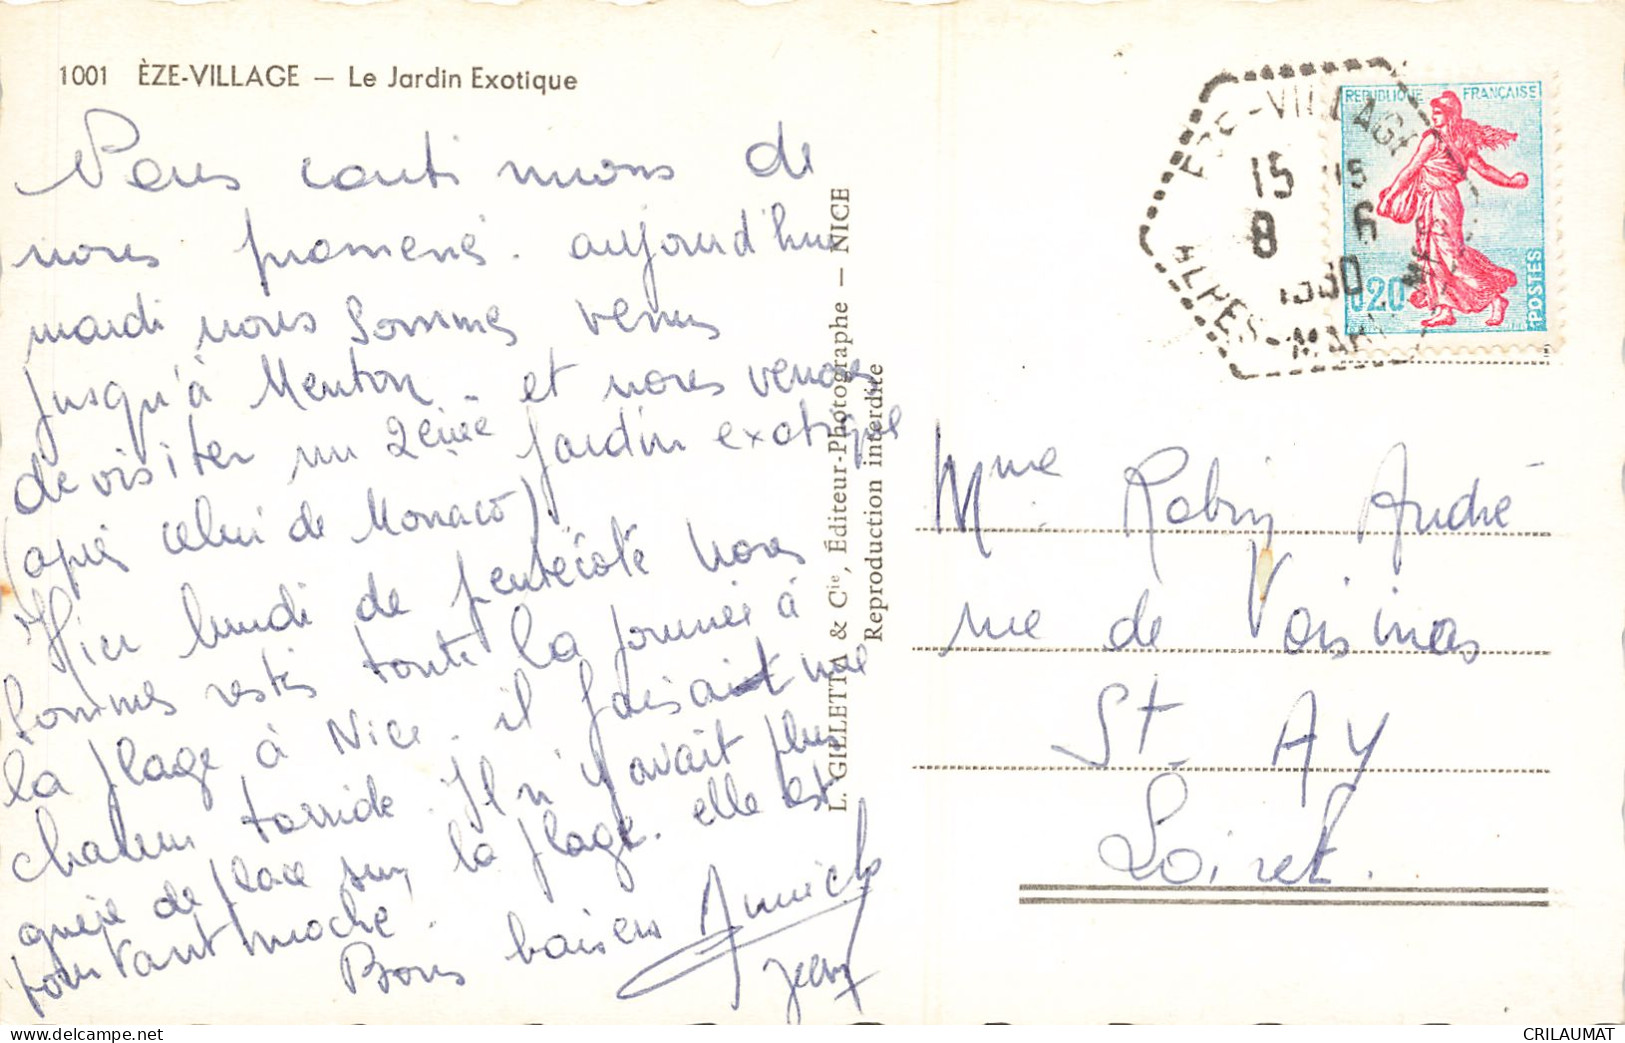 1001 ÈZE-VILLAGE — Le Jardin Exotique
Nous continuons de
nous promené. aujourd'hui
mardi nous sommes venus
jusqu'à Menton. et nous venons
de visiter un 2eme jardin exotique
(après celui de Monaco).
Hier lundi de pentecôte nous
sommes restés toute la journée à
la plage à Nice. il faisait une
chaleur torride. Il n'y avait plus
guère de place sur la plage. elle est
pourtant moche.
Bons baisers Annick
Jean
L. GILLETTA & Cie, Éditeur-Photographe — NICE
Reproduction interdite
EZE-VILLAGE
15 15
8 6
1960
ALPES-MAR
REPUBLIQUE FRANÇAISE
0,20
POSTES
Mme Robin André
rue de Voisinas
St AY
Loiret.
CRILAUMAT